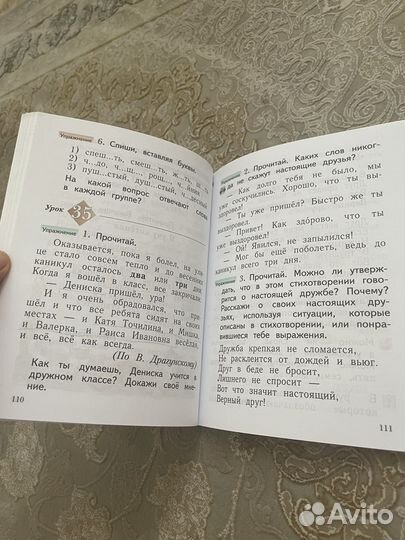 Упражнение 6. Спиши, вставляя буквы.
1) спеш...ть, смеш...ть, ж...ть,
2) ч...до, ч...ш..., рощ..., ч...
3) пуш...стый, душ...стый, ч...
На какой вопрос отвечают слова
в каждой группе?
Урок 35
Упражнение 1. Прочитай.
Оказывается, пока я болел, на улице
стало совсем тепло и до весенних
каникул осталось два или три дня.
Когда я вошёл в класс, все закричали:
— Дениска пришёл, ура!
И я очень обрадовался, что пришёл
и что все ребята сидят на своих
местах — и Катя Точилина, и Миша,
и Валерка, и Раиса Ивановна весёлая,
и всё, всё как всегда.
(По В. Драгунскому)
Как ты думаешь, Дениска учится в
дружном классе? Докажи своё мнение.
110
Упражнение 2. Прочитай. Каких слов никогда
не скажут настоящие друзья?
— Как долго тебя не было, мы
уже соскучились. Хорошо, что ты выздоровел!
— Ты уже пришёл? Быстро же ты
выздоровел!
— Привет! Как здорово, что ты
уже выздоровел!
— Ой! Явился, не запылился!
— Мог бы ещё поболеть, ведь до
каникул всего три дня.
Упражнение 3. Прочитай. Можно ли утверждать,
что в этом стихотворении говорится
о настоящей дружбе? Почему?
Расскажи о своих настоящих друзьях,
используя ситуации, которые
описаны в стихотворении, или понравившиеся
тебе выражения.
Дружба крепкая не сломается,
Не расклеится от дождей и вьюг.
Друг в беде не бросит,
Лишнего не спросит —
Вот что значит настоящий,
Верный друг!
111
Avito